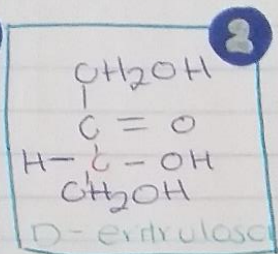 2
CH2OH
C = O
H - C - OH
CH2OH
D-eritrulosa